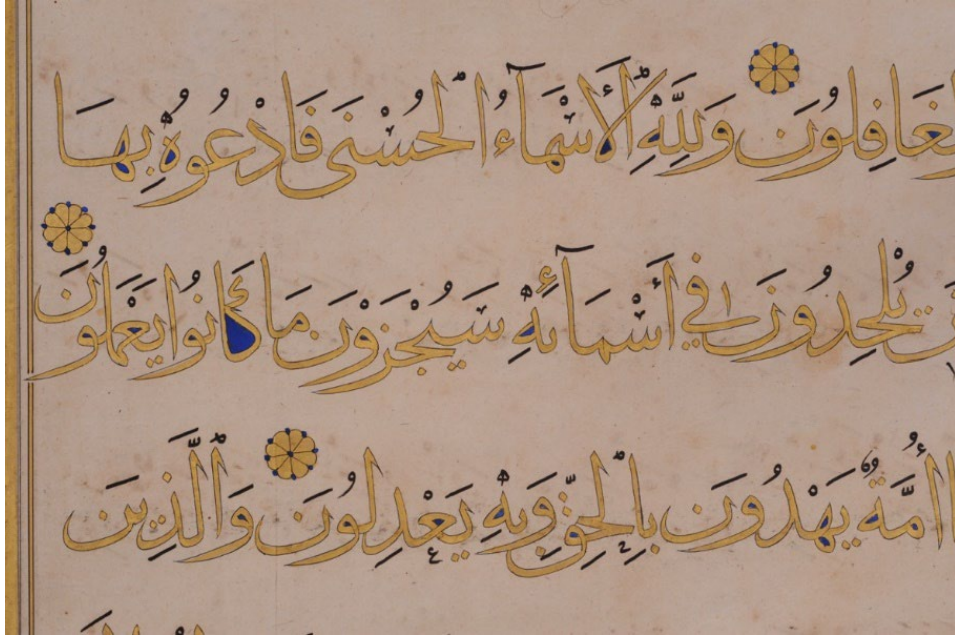 لغَافِلُونَ وَلِلَّهِ ٱلْأَسْمَآءُ ٱلْحُسْنَى فَادْعُوهُ بِهَا
يُلْحِدُونَ فِي أَسْمَآئِهِ سَيُجْزَوْنَ مَا كَانُوا يَعْمَلُونَ
أُمَّةٌ يَهْدُونَ بِٱلْحَقِّ وَبِهِ يَعْدِلُونَ وَٱلَّذِينَ